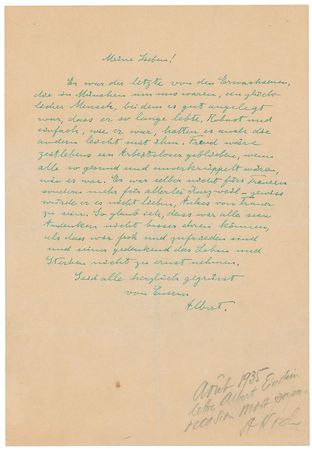 Meine Lieben!
Er war der letzte von den Erwachsenen,
die in München um uns waren, ein glück-
licher Mensch, bei dem es gut angelegt
war, dass er so lange lebte. Robust und
einfach, wie er war, hatten es auch die
andern leicht mit ihm. Freud wäre
zeitlebens ein Arbeitsloser geblieben, wenn
alle so gesund und unverkrüppelt wären,
wie er war. Er war selber nicht fürs Trauern
sondern mehr für allerlei Kurzweil - gewiss
würde er es nicht lieben, Anlass von Trauer
zu sein. So glaub ich, dass wir alle sein
Andenken nicht besser ehren können,
als dass wir froh und zufrieden sind
und seiner gedenkend das Leben und
Sterben nicht zu ernst nehmen.
Seid alle herzlich gegrüsst
von Eurem
Albert.
Août 1935
lettre Albert Einstein
occasion mort
A Koch